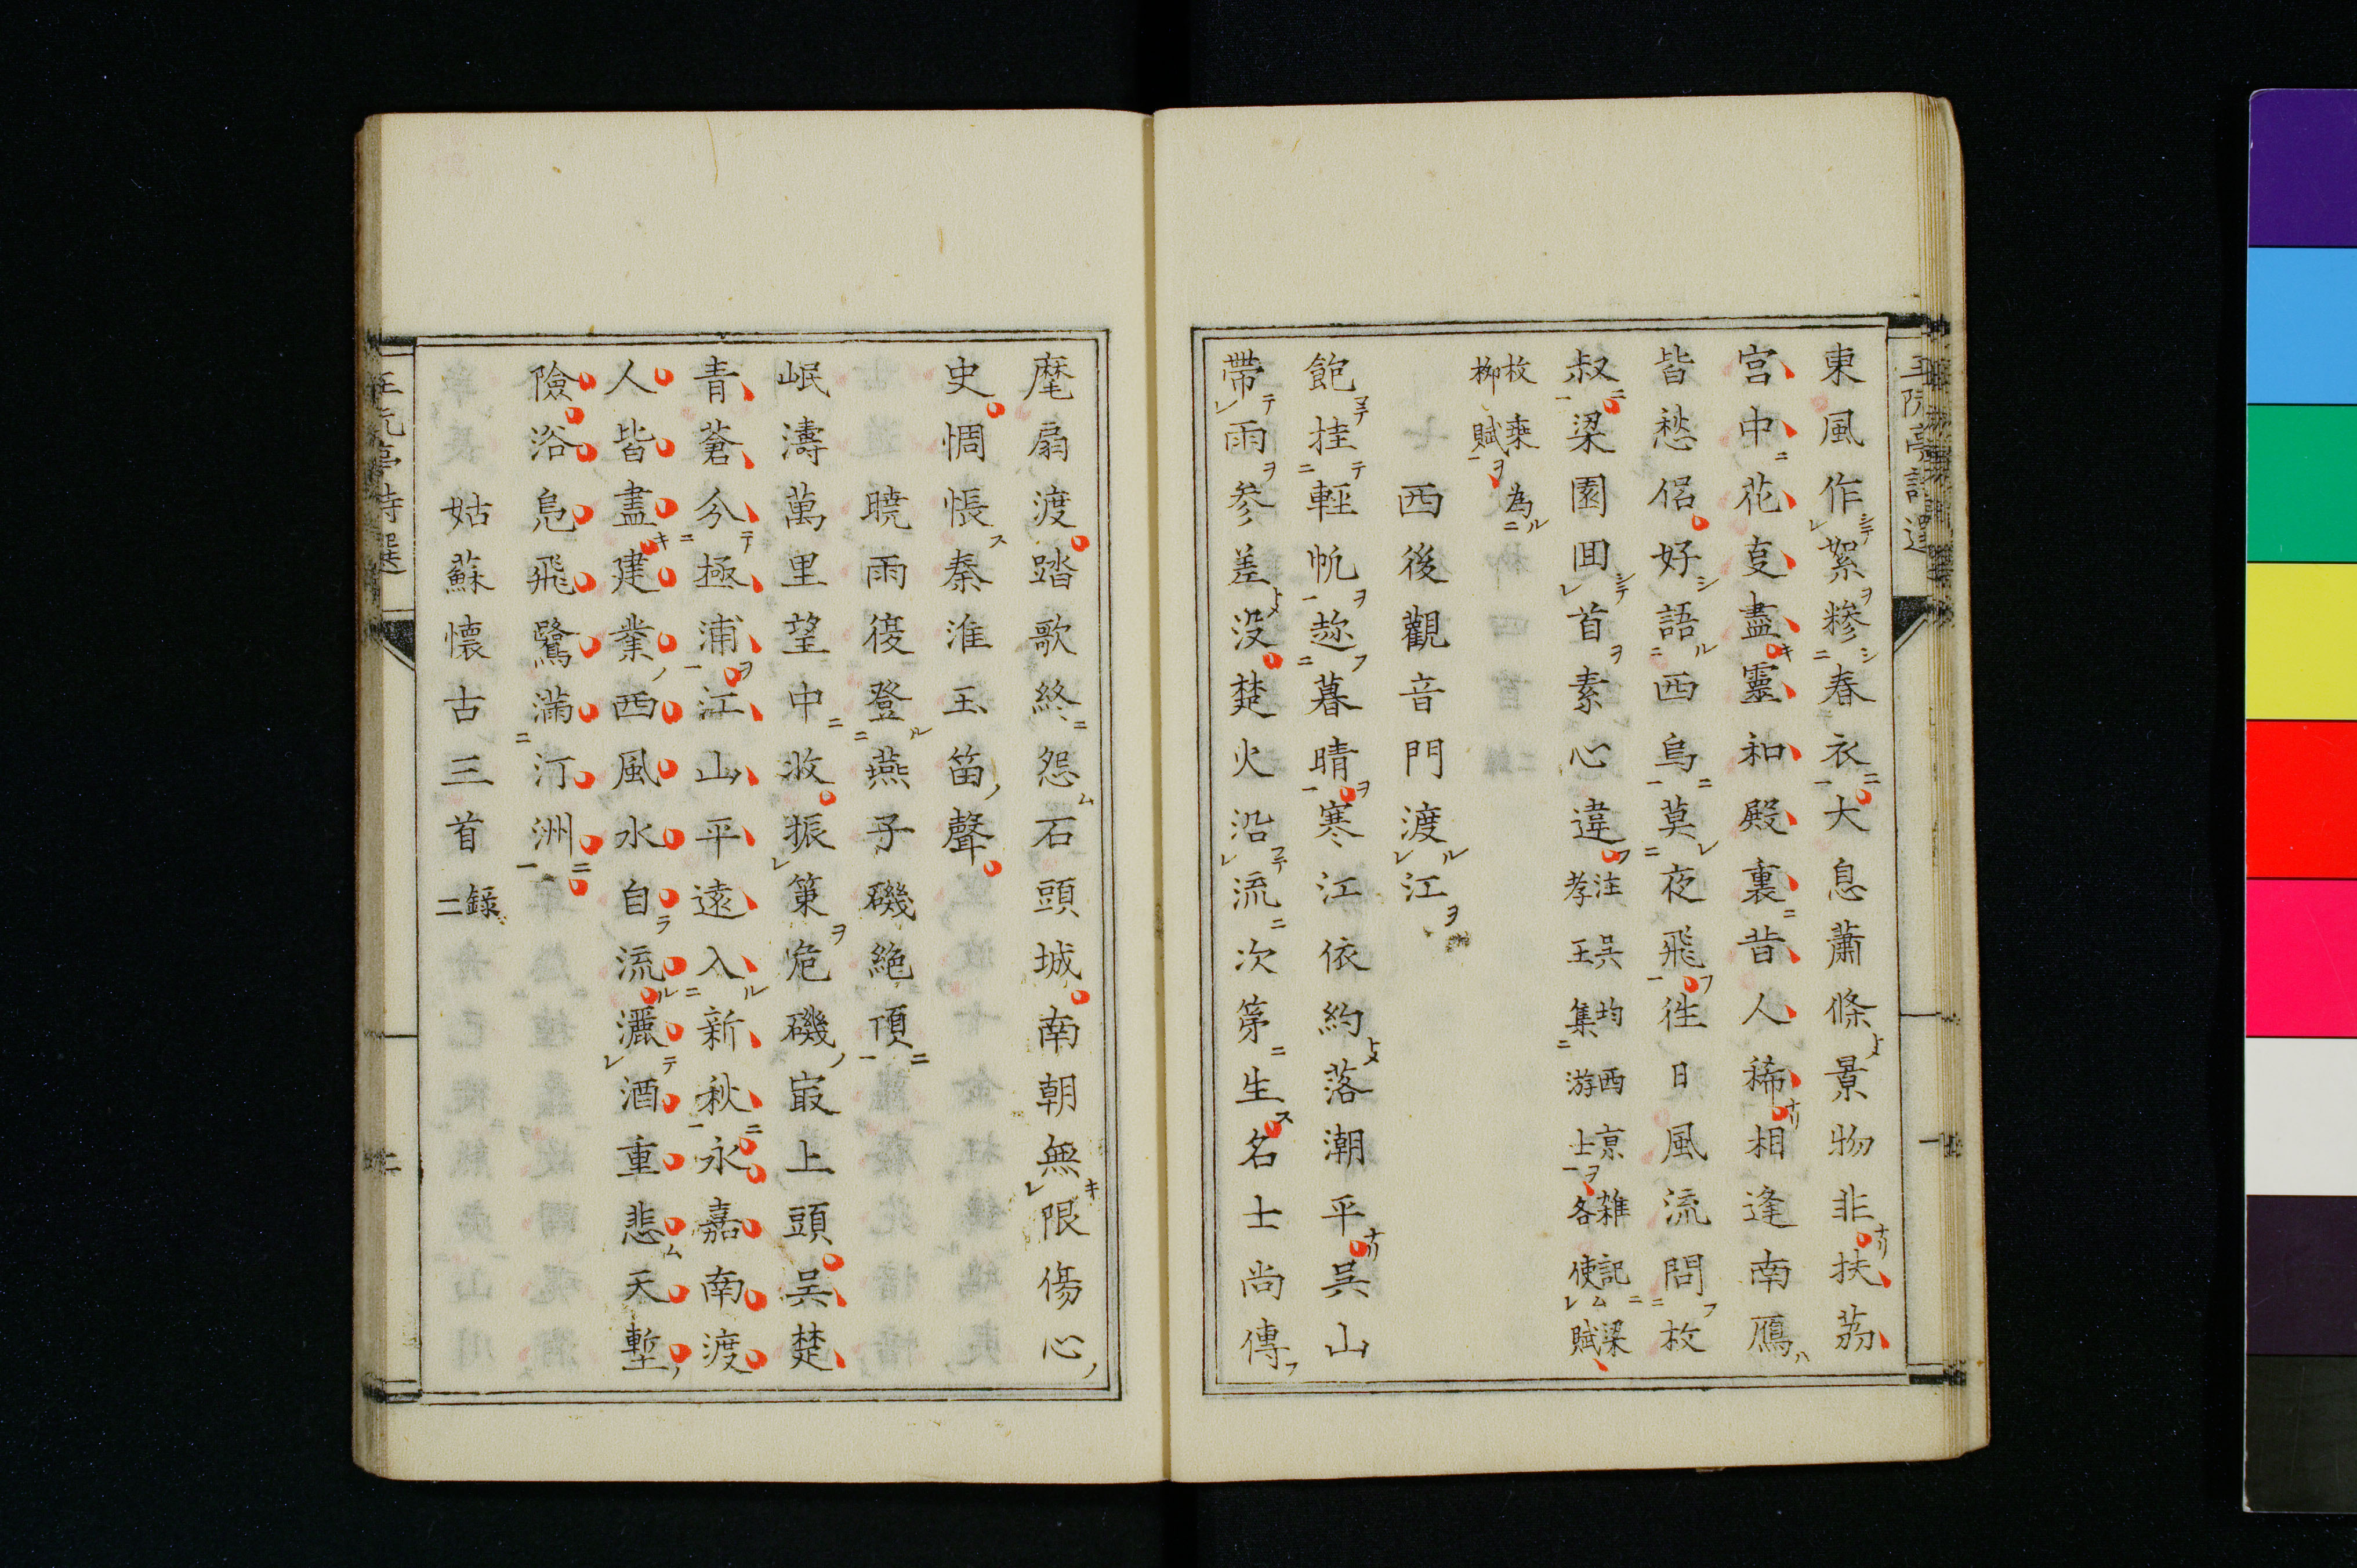 東風作絮糝春衣太息蕭條景物非扶茘
宮中花𠦑盡靈和殿裏昔人稀相逢南鴈
皆愁侶好語西烏莫夜飛往日風流問枚
叔梁園囬首素心違注吳均西京雜記梁
孝王集游士各使賦
枚乗為
栁賦
西後觀音門渡江
飽挂輕帆趂暮晴寒江依約落潮平吳山
帶雨參差没楚火沿流次第生名士尚傳
麾扇渡踏歌終怨石頭城南朝無限傷心
史惆悵秦淮玉笛聲
曉雨復登燕子磯絶頂
岷濤萬里望中收振䇿危磯最上頭吳楚
青蒼分極浦江山平遠入新秋永嘉南渡
人皆盡建業西風水自流灑酒重悲天塹
險浴鳧飛鷺滿汀洲
姑蘇懷古三首錄二
王阮亭詩選
二